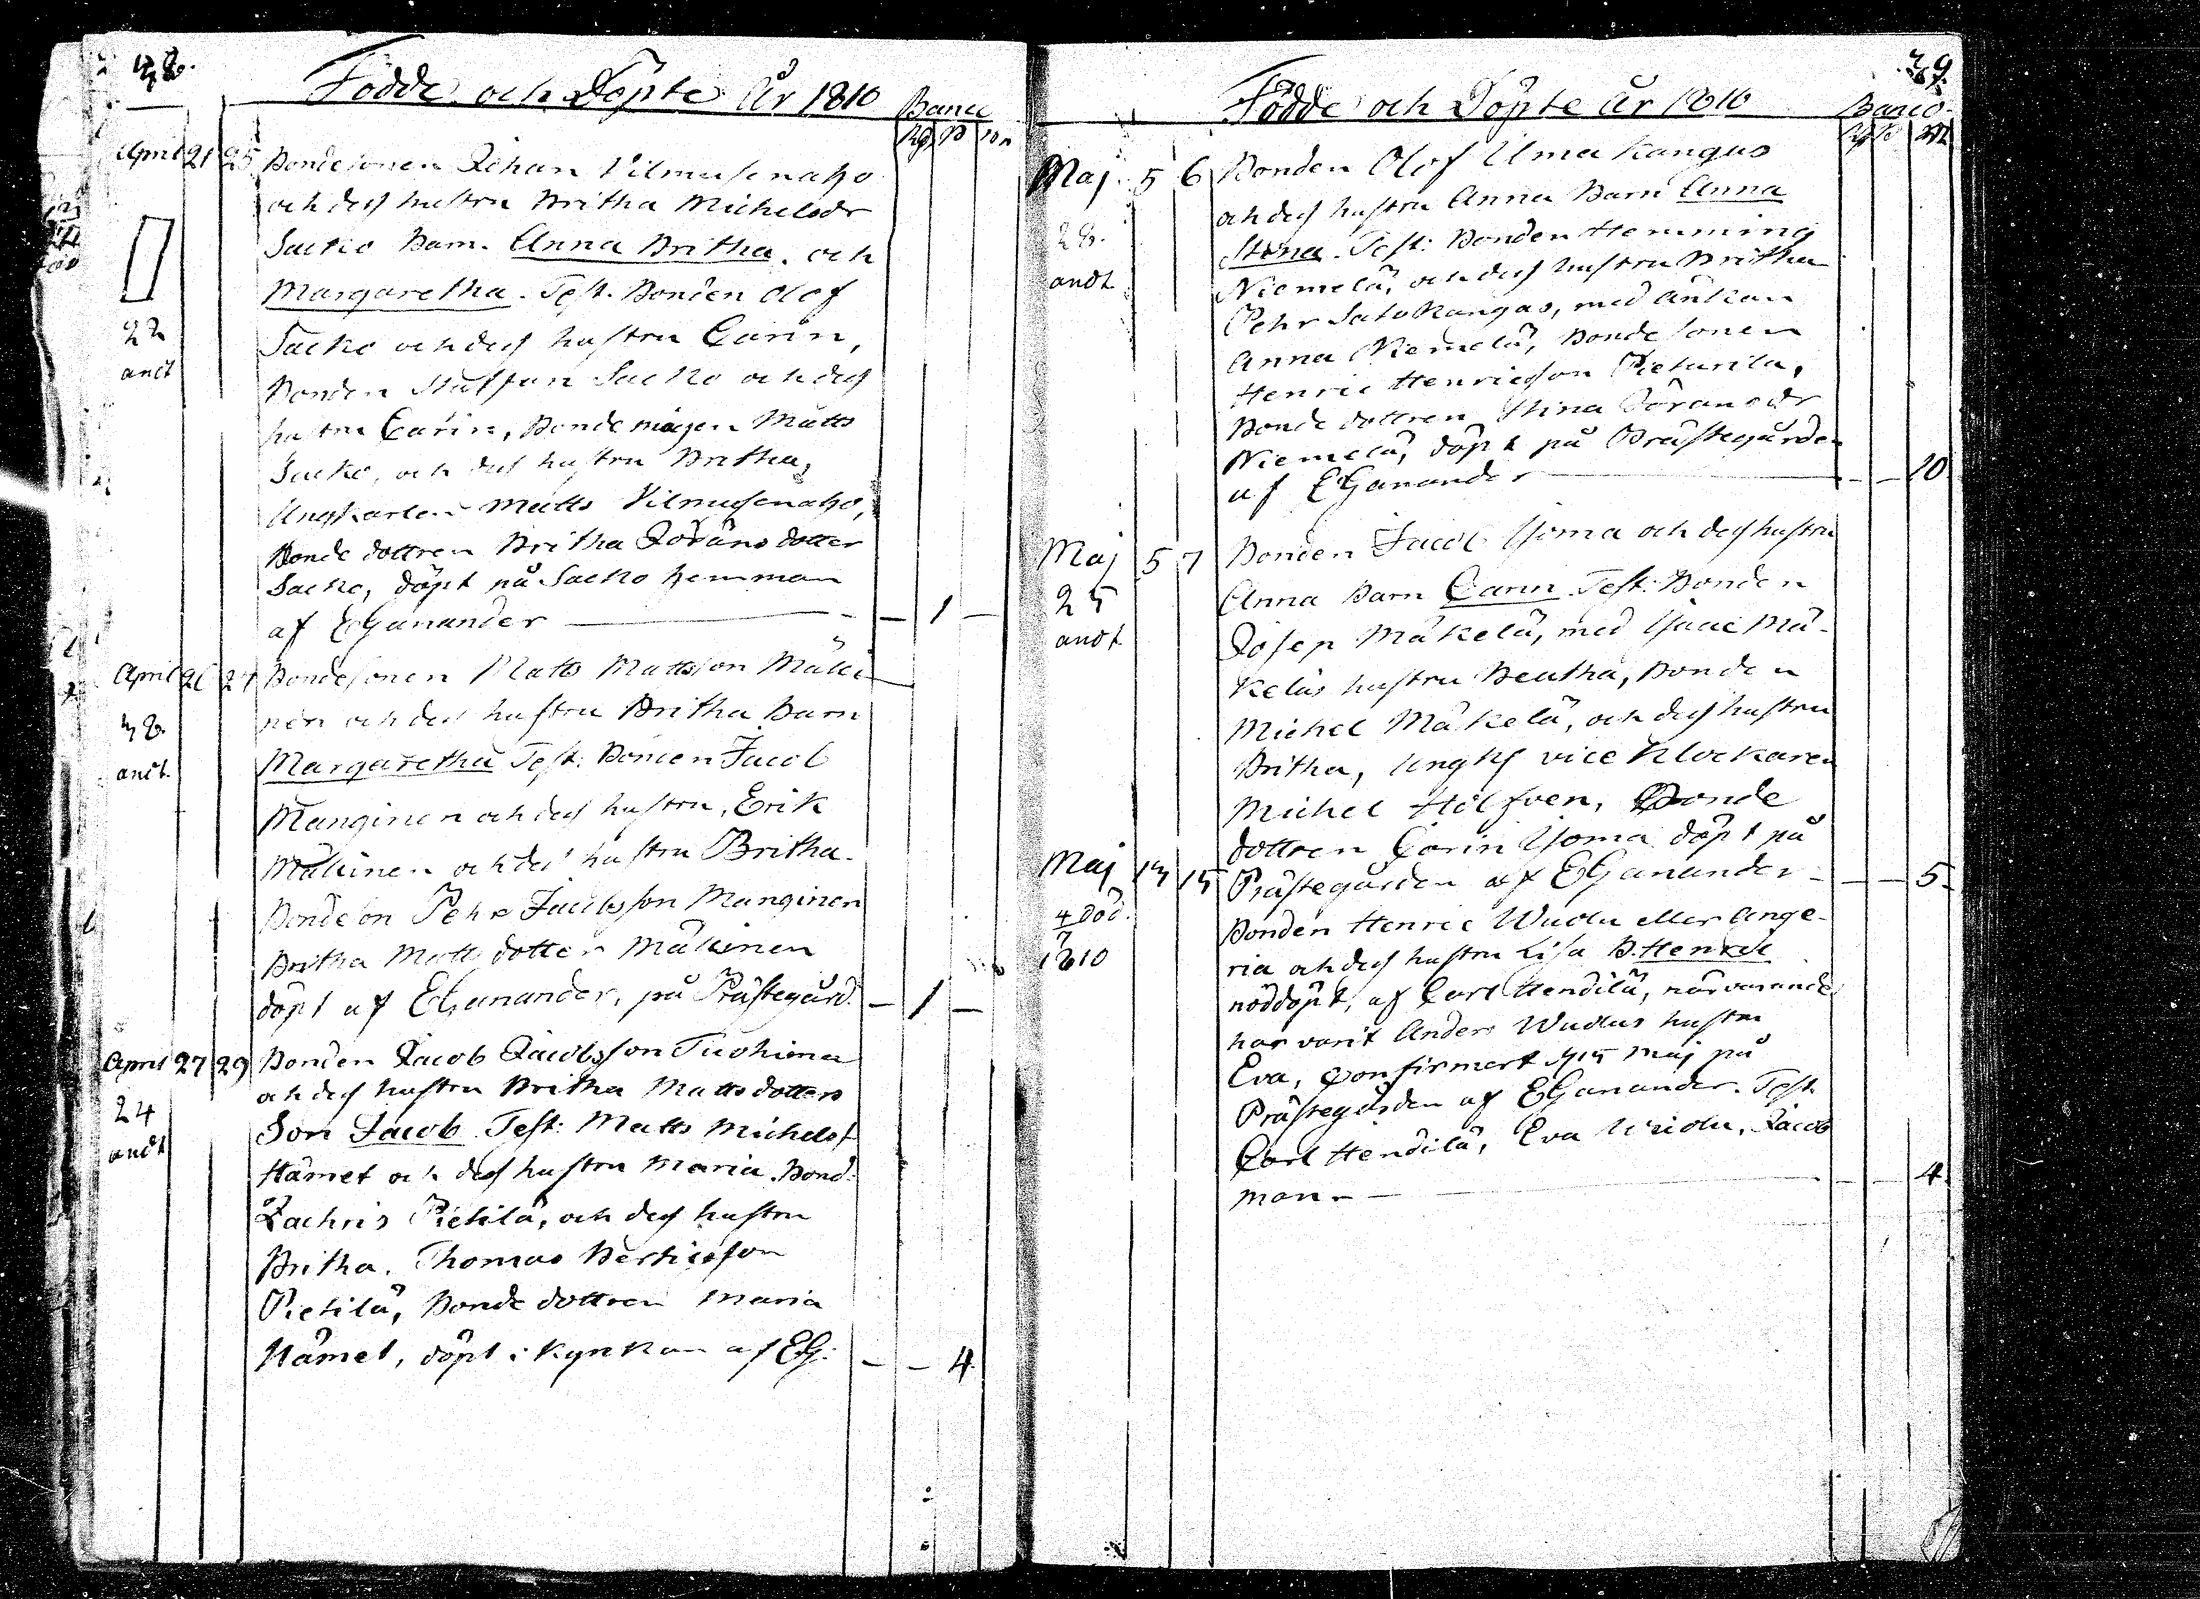 Födde och Döpte År 1810 Banco
April 21 25 Bondesonen Johan Vilmusenaho
och dess hustru Britha Michelsdr
Sacko Barn. Anna Britha. och
Margaretha. Test. Bonden Olof
Sacko och dess hustru Carin,
22
andt
Bonden Staffan Sacko och dess
hustru Carin, Bonde mågen Matts
Sacko, och dess hustru Britha,
Ungkarlen Matts Vilmusenaho,
Bonde dottren Britha Jöransdotter
Sacko, döpt på Sacko hemman
af EGanander — 1 —
April 26 27 Bondesonen Matts Mattsson Mäki
nen och dess hustru Britha Barn
Margaretha Test: Bonden Jacob
andt.
Manginen och dess hustru, Erik
Mäkinen och dess hustru Britha.
Bondeson Pehr Jacobsson Manginen
Britha Matts dotter Mäkinen
döpt af EGanander, på Prästegård. — 1 —
April 27 29 Bonden Jacob Jacobsson Tuohima
och dess hustru Britha Matts dotters
24
andt
Son Jacob Test: Matts Michelss
Hämet och dess hustru Maria. Bond:
Zachris Pietilä, och dess hustru
Britha. Thomas Bertilsson
Pietilä, Bonde dottren Maria
Hämet, döpt i Kyrkan af EG: — — 4.
39.
Födde och Döpte År 1810 Banco.
Maj 5 6 Bonden Olof Uma Kangas
och dess hustru Anna Barn Anna
28.
andt
Stina. Test: Bonden Hemming
Niemelä, och dess hustru Britha
Pehr Satokangas, med änkan
Anna Niemelä, Bonde sonen
Henric Henricsson Pieturila,
Bonde dottren Stina Göransdr
Niemelä, döpt på Prästegården
af EGanander — — 10
Maj 5 7 Bonden Jacob Ysoma och dess hustru
25
andt
Anna Barn Carin Test: Bonden
Josep Mäkelä, med Isaac Mä-
keläs hustru Beatha, Bonden
Michel Mäkelä, och dess hustru
Britha, Ungk vice Klockaren
Michel Holfven, Bonde
dottren Carin Ysoma döpt på
Prästegården af EGanander — — 5.
Maj 14 15
4 död.
7
1810
Bonden Henric Wuolu eller Ange-
ria och dess hustru Lisa B. Henric
nöddöpt, af Carl Hendilä, närvarande
har varit Anders Wuolus hustru
Eva, confirmert 15 Maj på
Prästegården af EGanander. Test.
Carl Hendilä, Eva Wuolu, Jacob
man. — — 4.